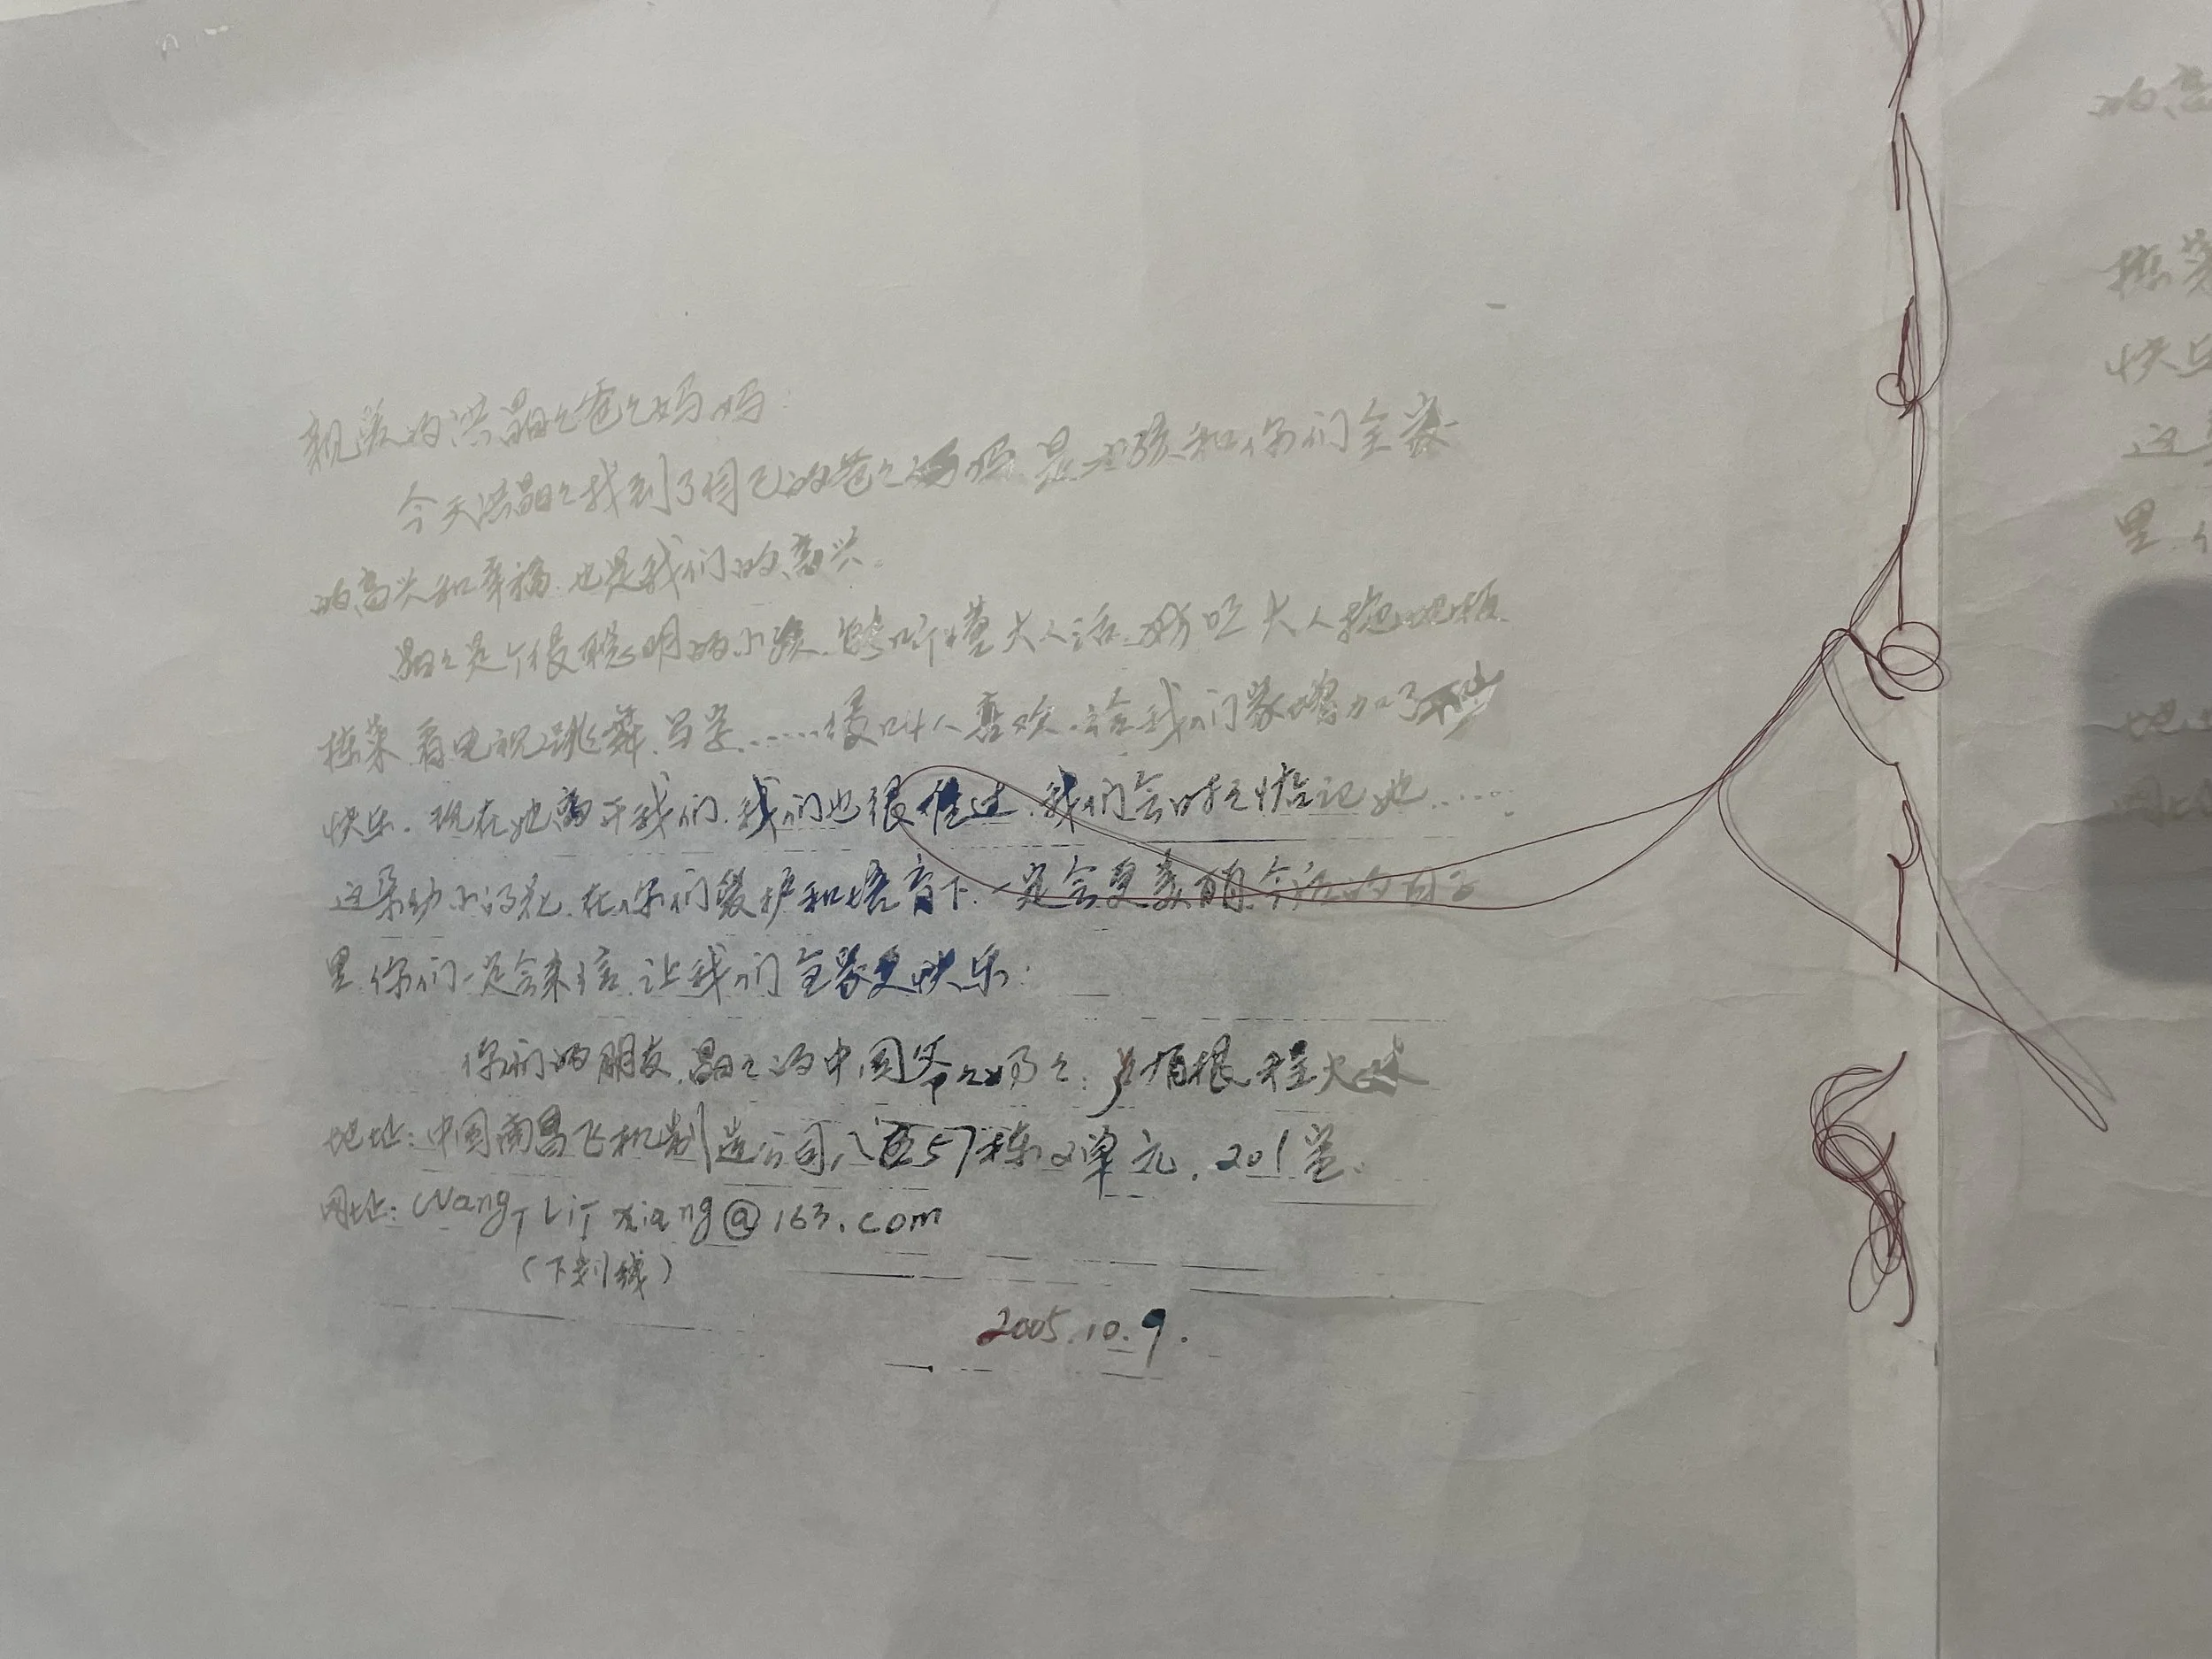 亲爱的洪晶々爸々妈妈:
今天洪晶々找到了自己的爸々妈妈.是小孩和你们全家
的高兴和幸福.也是我们的高兴。
晶々是个很聪明的小孩.能听懂大人话.帮忙大人拖地板.
拣菜.看电视.跳舞.写字......很叫人喜欢.给我们家增加了
快乐.现在她离开我们.我们也很难过.我们会时々惦记她......
这朵幼小的花.在你们爱护和培育下.一定会更美丽.今后的日子
里.你们一定会来信.让我们全家更快乐.
你们的朋友.晶々的中国爷々奶々:
地址:中国南昌飞机制造公司八区57栋2单元.201室.
网址:Wang_Li_xiang@163.com
(下划线)
2005.10.9.
的高
拣菜
快乐
这朵
里.
地址
网址